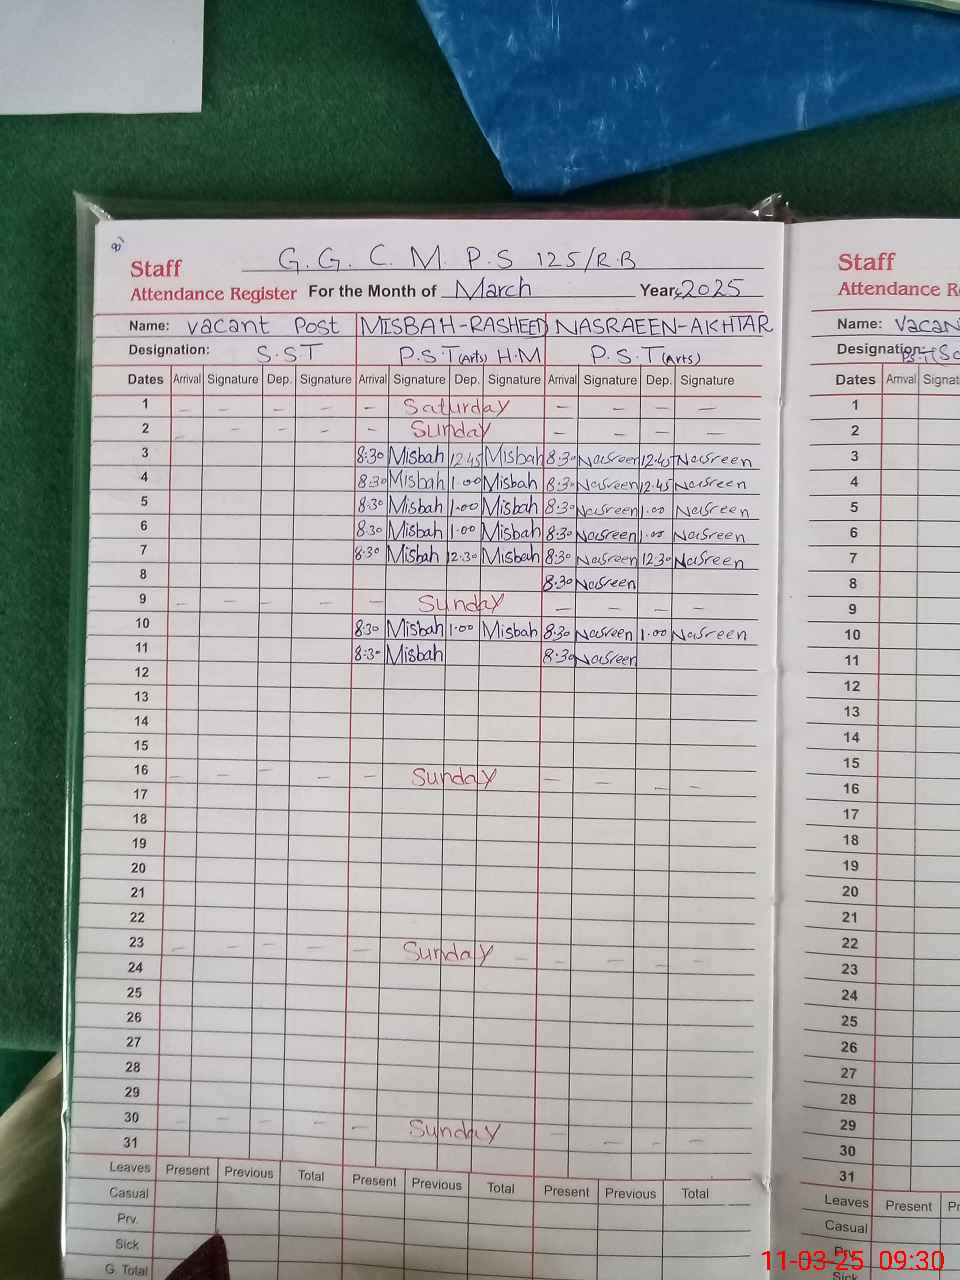 G.G.C.M.P.S 125/R.B
Staff
Attendance Register For the Month of March Year 2025
Name: vacant Post MISBAH-RASHEED NASRAEEN-AKHTAR
Designation: S.S.T P.S.T (Arts) H.M P.S.T (Arts)
Dates Arrival Signature Dep. Signature Arrival Signature Dep. Signature Arrival Signature Dep. Signature
1 – – – – – Saturday – – – –
2 – – – – Sunday – – – –
3 8:30 Misbah 12:45 Misbah 8:30 Nasreen 12:45 Nasreen
4 8:30 Misbah 1.00 Misbah 8:30 Nasreen 12:45 Nasreen
5 8:30 Misbah 1.00 Misbah 8:30 Nasreen 1.00 Nasreen
6 8:30 Misbah 1.00 Misbah 8:30 Nasreen 1.00 Nasreen
7 8:30 Misbah 12:30 Misbah 8:30 Nasreen 12:30 Nasreen
8 8:30 Nasreen
9 – – – – – Sunday – – – –
10 8:30 Misbah 1.00 Misbah 8:30 Nasreen 1.00 Nasreen
11 8:30 Misbah 8:30 Nasreen
12
13
14
15
16 – – – – – Sunday – – – –
17
18
19
20
21
22
23 – – – – – Sunday – – – – –
24
25
26
27
28
29
30 – – – – – Sunday – – – –
31
Leaves Present Previous Total Present Previous Total Present Previous Total
Casual
Prv.
Sick
G. Total
Staff
Attendance
Name: Vacan
Designation:
Dates Arrival Signat
1
2
3
4
5
6
7
8
9
10
11
12
13
14
15
16
17
18
19
20
21
22
23
24
25
26
27
28
29
30
31
Leaves Present Pr
Casual
Prv.
Sick
11-03-25 09:30